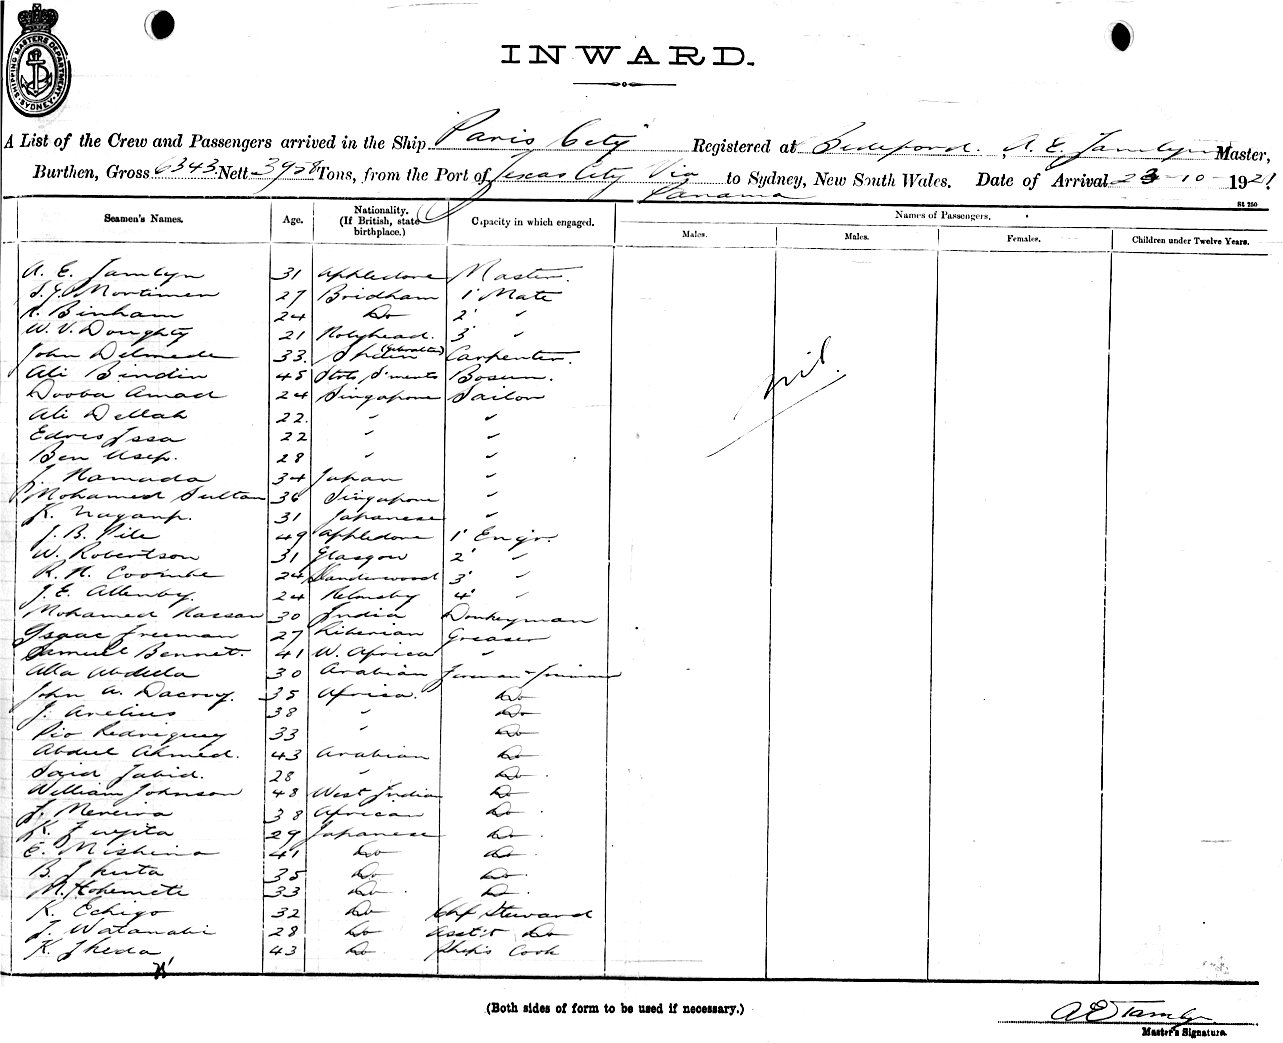 SHIPPING MASTERS DEPARTMENT SYDNEY
INWARD.
A List of the Crew and Passengers arrived in the Ship "Paris City" Registered at Bideford. A. E. Tamlyn Master,
Burthen, Gross 6343 Nett 3928 Tons, from the Port of Texas City Via Panama to Sydney, New South Wales. Date of Arrival 23-10-1921
St 750
Seamen's Names. Age. Nationality. (If British, state birthplace.) Capacity in which engaged. Names of Passengers.
Males. Males. Females. Children under Twelve Years.
A. E. Tamlyn 31 Appledore Master.
Mortimer 27 Bridham 1' Mate
Binham 24 Do 2' "
W. V. Doughty 21 Holyhead. 3' "
John Delmede 33. (Gibraltar) Carpenter.
Ali Bindin 45 Sts S'ments Bosun.
Dooba Amad 24 Singapore Sailor
Ali Dellah 22. " "
Edris Issa 22 " "
Ben Usep. 28 " "
J. Hamada 34 Japan "
Mohamed Sultan 36 Singapore "
K. 31 Japanese "
J. B. Pile 49 Appledore 1' Engr.
W. Robertson 31 Glasgow 2' "
R. H. Coombe 24 3' "
J. E. Allenby. 24 Helmsby 4' "
Mohamed Hassan 30 India Donkeyman
Isaac Freeman 27 Liberian Greaser
Samuel Bennet. 41 W. Africa "
Alla Abdela 30 Arabian Fireman & Trimmer
John A. Dacruy. 35 Africa. Do
J. Anelius 38 " Do
Pio Redriguey 33 " Do
Abdul Ahmed. 43 Arabian Do
Said Jabid. 28 " Do
William Johnson 48 West Indian Do
J. Mereira 38 African Do
K. Fujita 29 Japanese Do
E. Mishina 41 Do Do
B. Ikuta 35 Do Do
M. 33 Do Do
K. Echigo 32 Do Chf Steward
J. Watanabi 28 Do Asst's Do
K. Ikeda 43 Do Ship's Cook
nil.
(Both sides of form to be used if necessary.)
A E Tamlyn
Master's Signature.